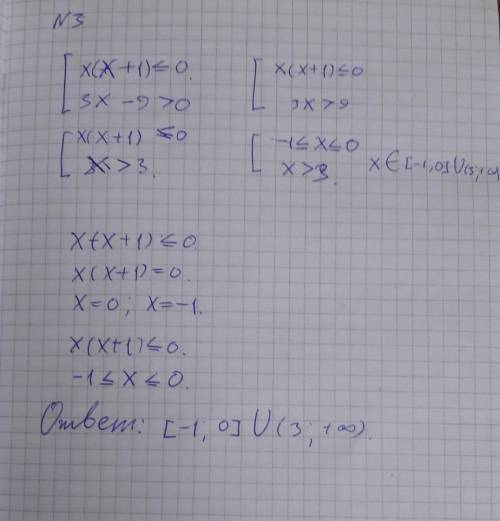 N3
[ x(x+1)≤0.
3x-9>0
[ x(x+1)≤0
3x>9
[ x(x+1) ≤0
x>3.
[ -1≤x≤0
x>3.
x∈[-1,0]∪(3;+∞)
x(x+1)≤0
x(x+1)=0.
x=0; x=-1.
x(x+1)≤0.
-1≤x≤0.
Ответ: [-1; 0]∪(3; +∞).